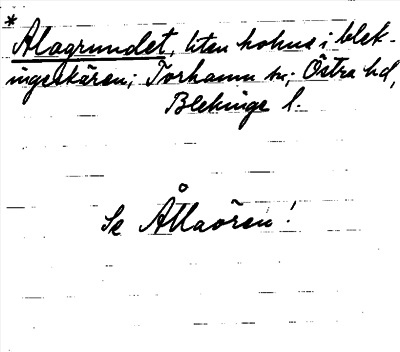 *
Alagrundet, liten holme i blek-
ingeskären; Torhamn sn; Östra hd,
Blekinge l.
Se Ållaören!